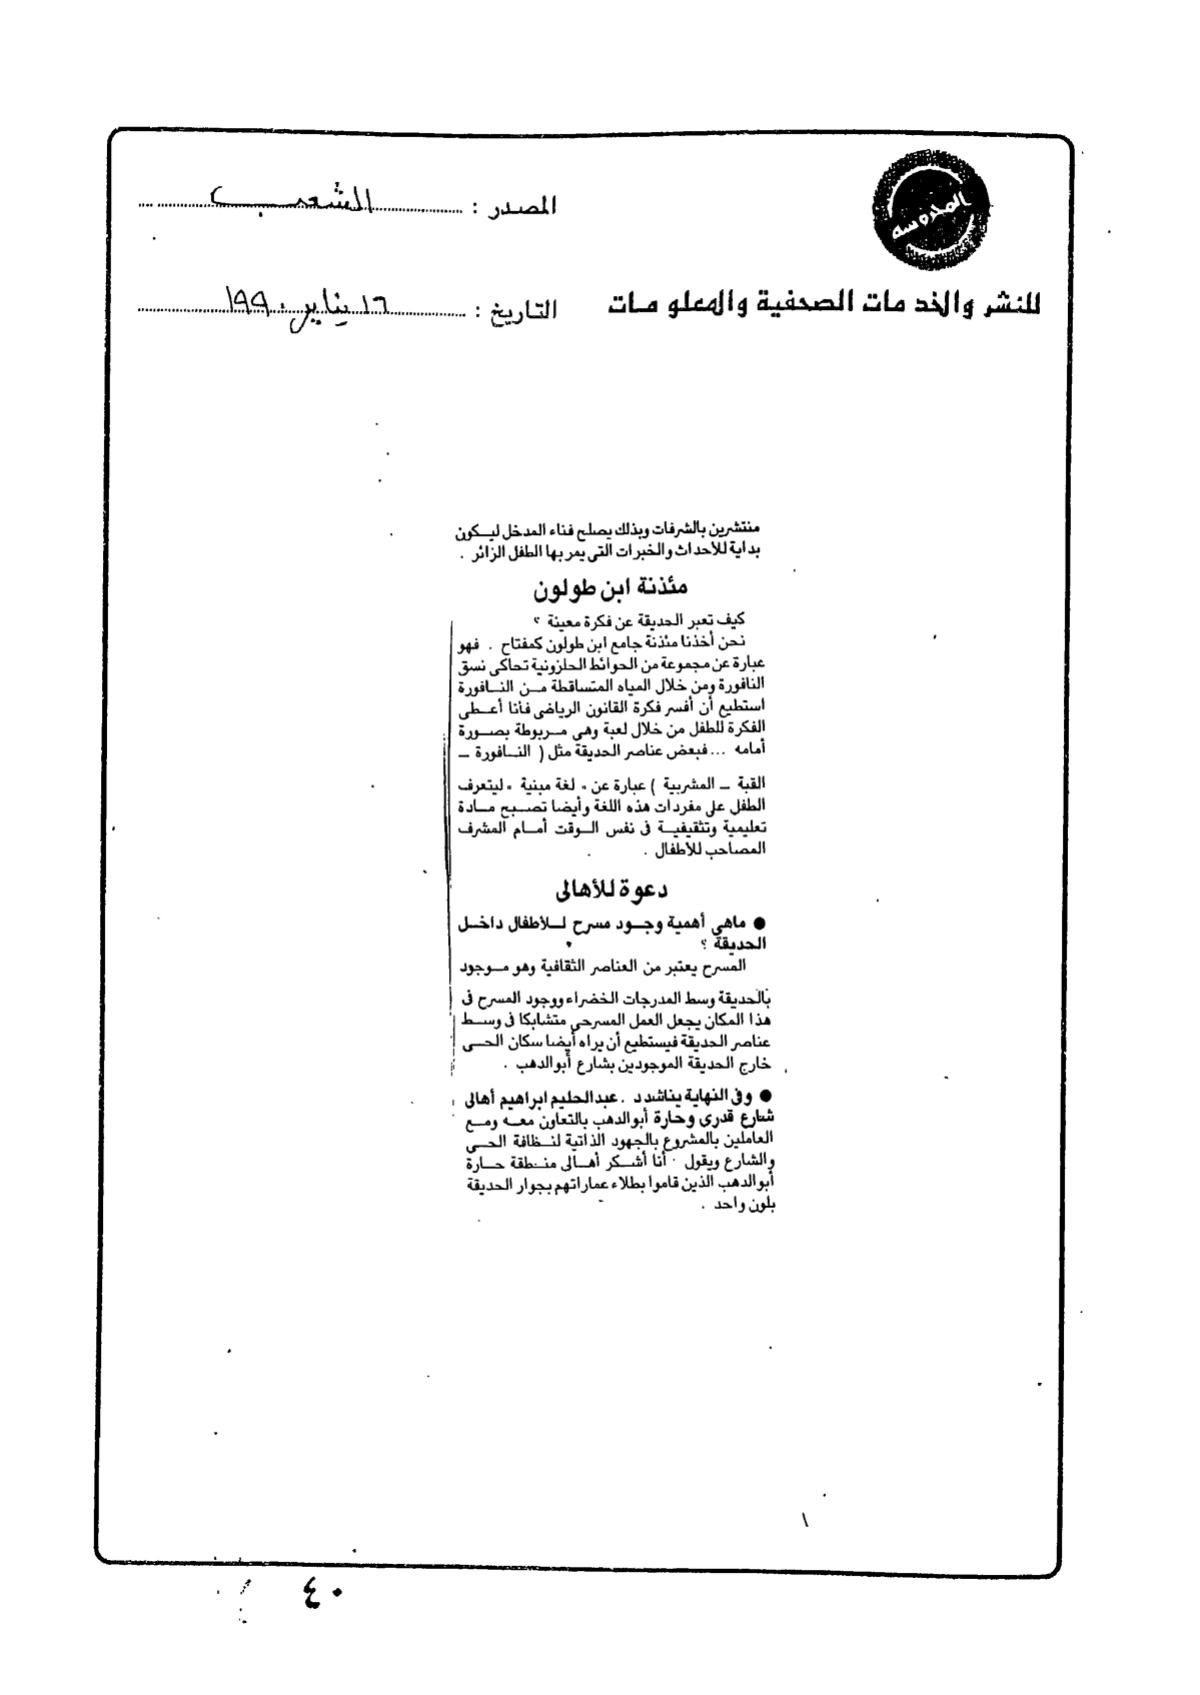 المحروسة
المصدر : الشعب
للنشر والخدمات الصحفية والمعلومات
التاريخ : ١٦ يناير ١٩٩٠
منتشرين بالشرفات وبذلك يصلح فناء المدخل ليكون
بداية للأحداث والخبرات التى يمر بها الطفل الزائر .
مئذنة ابن طولون
كيف تعبر الحديقة عن فكرة معينة ؟
نحن أخذنا مئذنة جامع ابن طولون كمفتاح . فهو
عبارة عن مجموعة من الحوائط الحلزونية تحاكى نسق
النافورة ومن خلال المياه المتساقطة من النافورة
استطيع أن أفسر فكرة القانون الرياضى فأنا أعطى
الفكرة للطفل من خلال لعبة وهى مربوطة بصورة
أمامه ... فبعض عناصر الحديقة مثل ( النافورة ــ
القبة ــ المشربية ) عبارة عن « لغة مبنية » ليتعرف
الطفل على مفردات هذه اللغة وأيضا تصبح مادة
تعليمية وتثقيفية فى نفس الوقت أمام المشرف
المصاحب للأطفال .
دعوة للأهالى
● ماهى أهمية وجود مسرح للأطفال داخل
الحديقة ؟
المسرح يعتبر من العناصر الثقافية وهو موجود
بالحديقة وسط المدرجات الخضراء ووجود المسرح فى
هذا المكان يجعل العمل المسرحى متشابكا فى وسط
عناصر الحديقة فيستطيع أن يراه أيضا سكان الحى
خارج الحديقة الموجودين بشارع أبوالدهب .
● وفى النهاية يناشد د . عبدالحليم ابراهيم أهالى
شارع قدرى وحارة أبوالدهب بالتعاون معه ومع
العاملين بالمشروع بالجهود الذاتية لنظافة الحى
والشارع ويقول : أنا أشكر أهالى منطقة حارة
أبوالدهب الذين قاموا بطلاء عماراتهم بجوار الحديقة
بلون واحد .
١
٤٠